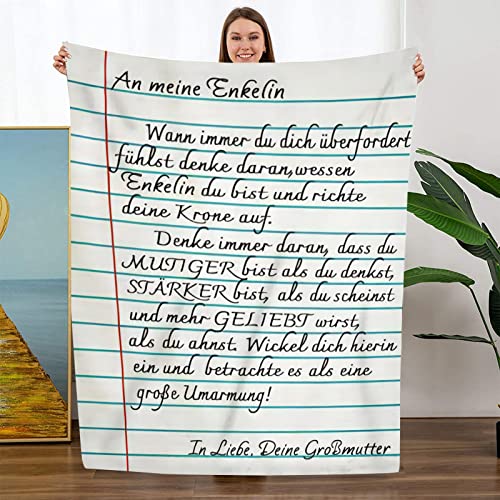 An meine Enkelin
Wann immer du dich überfordert
fühlst denke daran,wessen
Enkelin du bist und richte
deine Krone auf.
Denke immer daran, dass du
MUTIGER bist als du denkst,
STÄRKER bist, als du scheinst
und mehr GELIEBT wirst,
als du ahnst. Wickel dich hierin
ein und betrachte es als eine
große Umarmung!
In Liebe, Deine Großmutter